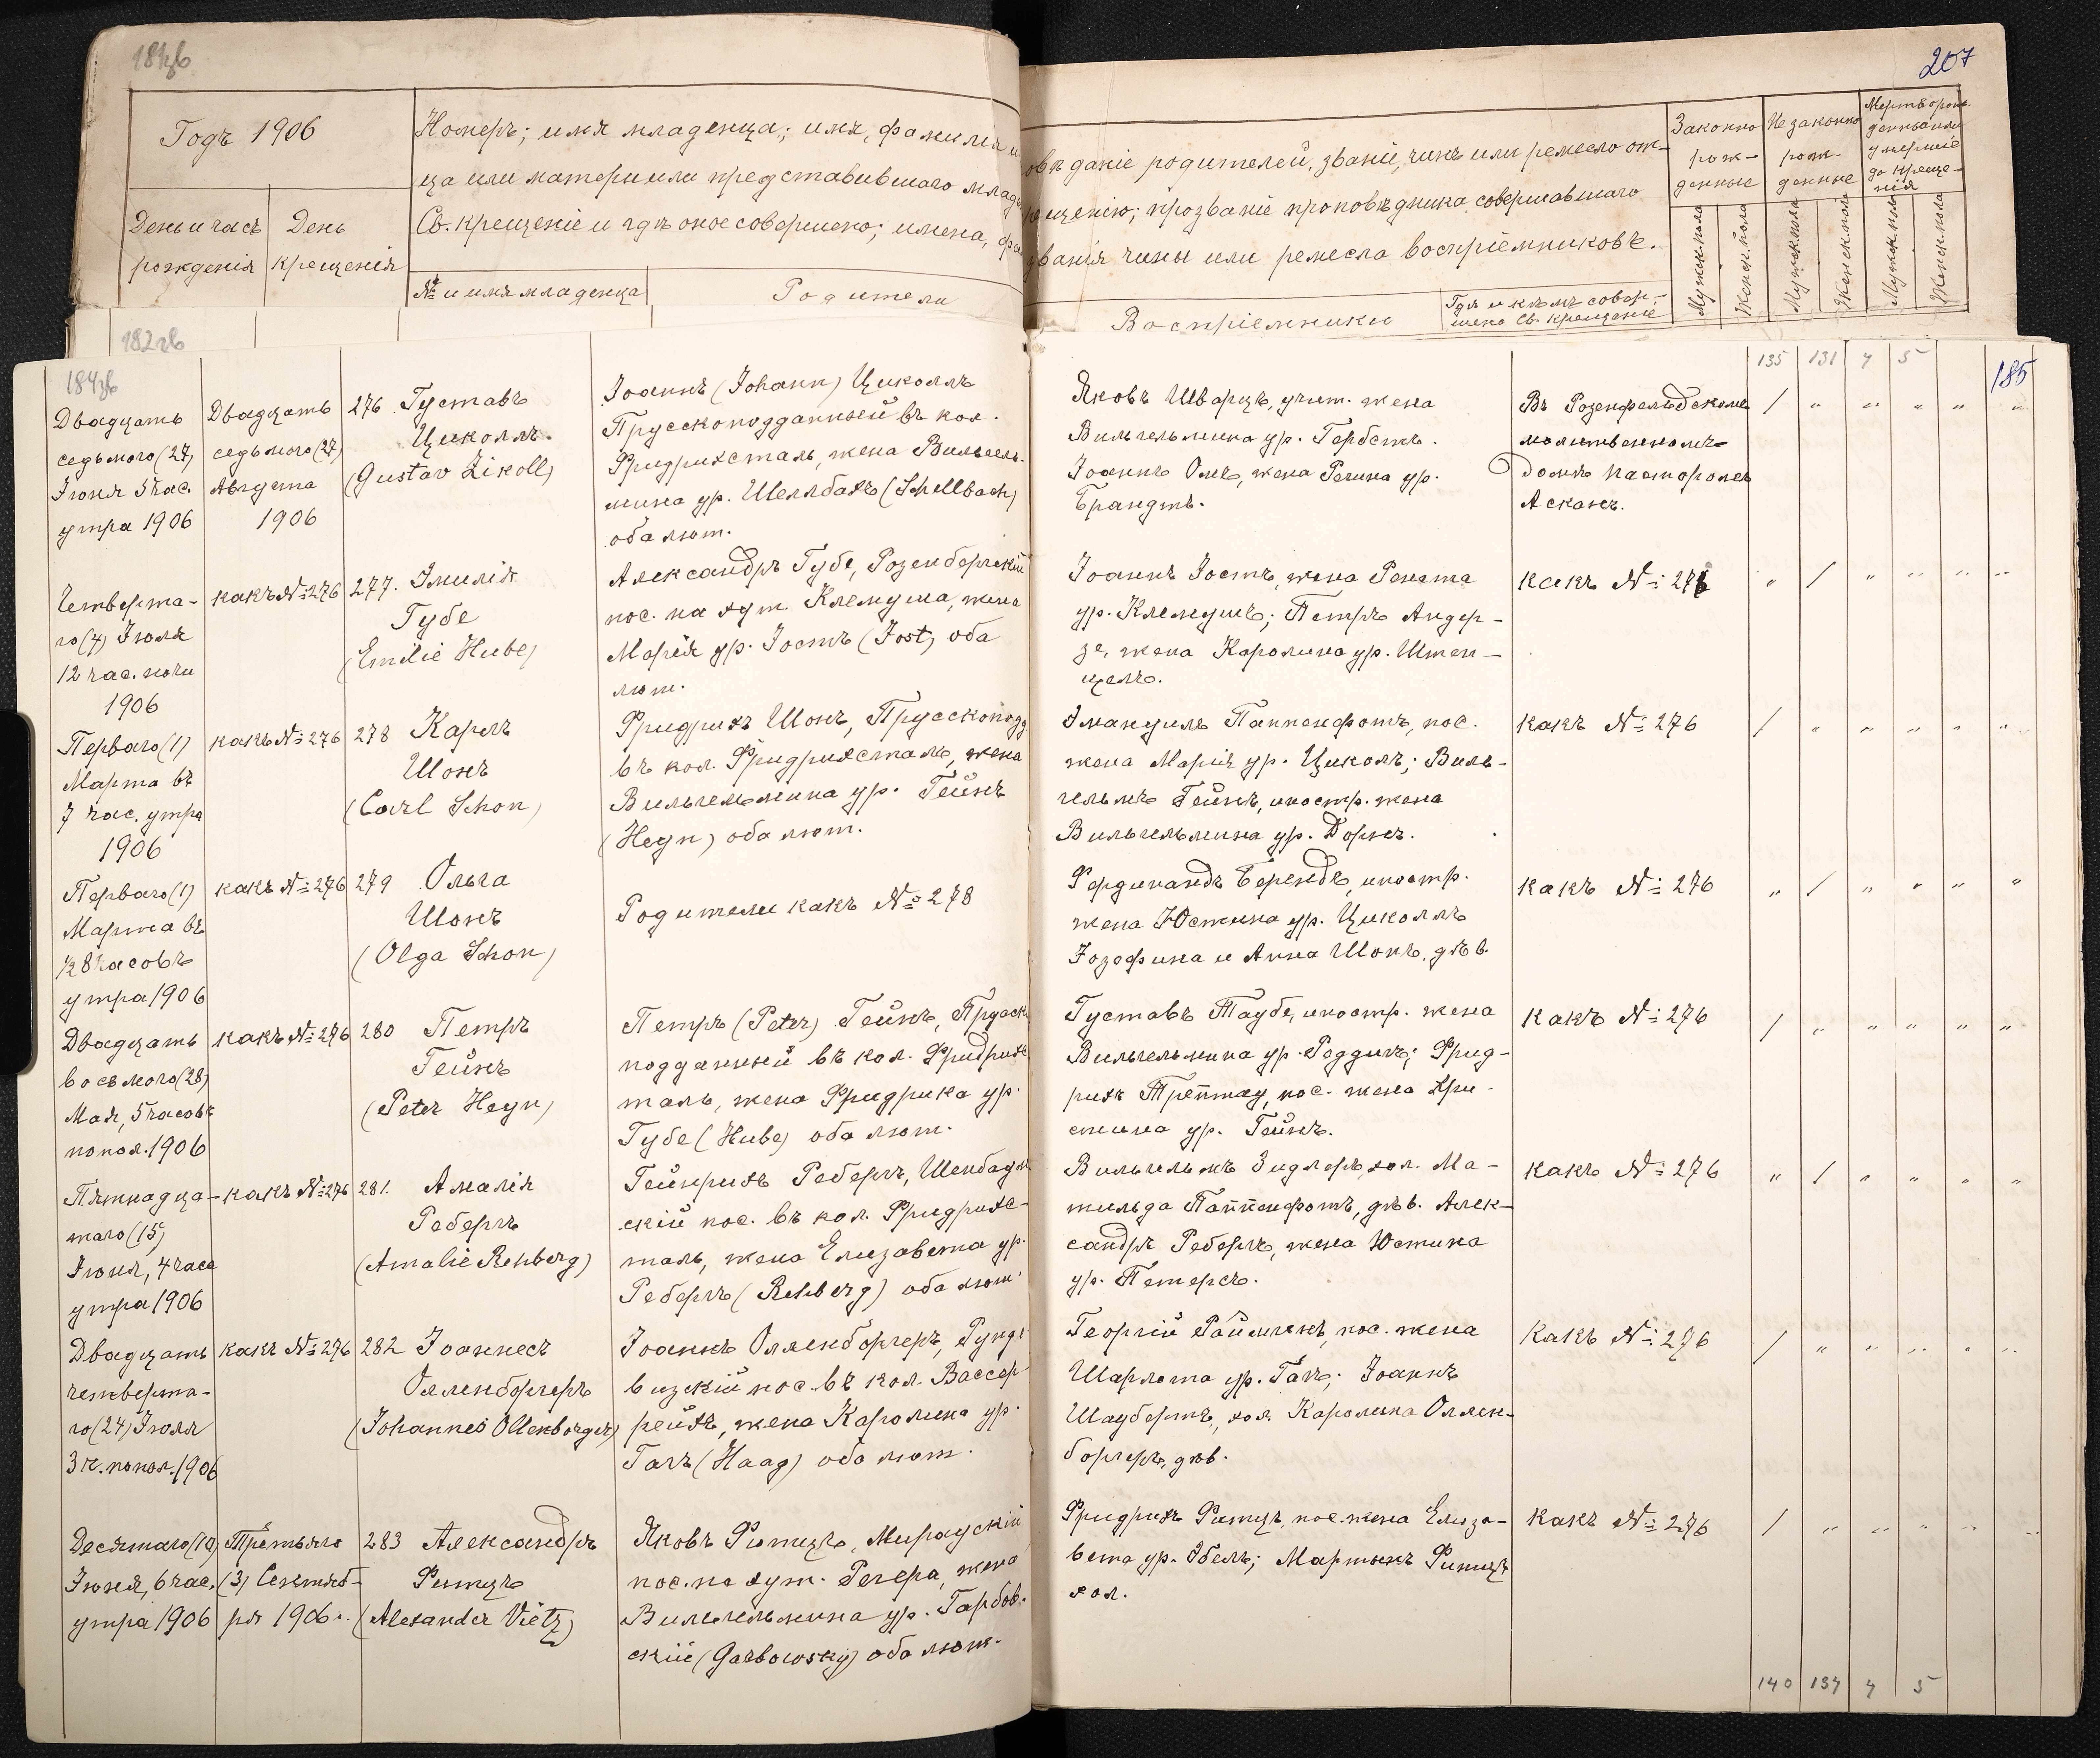 207
Годъ 1906
Номеръ; имя младенца; имя, фамилiя и
ца или матери или представившаго млад
Св. крещенiе и гдѣ оное совершено; имена, фа
День и часъ рожденiя
День крещенiя
№ и имя младенца
Родители
овѣданiе родителей, званiе, чинъ или ремесло от-
рещенiю; прозванiе проповѣдника совершавшаго
званiя чины или ремесла воспрiемниковъ.
Воспрiемники
Гдѣ и кѣмъ совер-
шено Св. крещенiе
Законно
рож-
денные
Незаконно
рож-
денные
Мертворож-
денные или
умершiе
до креще-
нiя
Мужск. пола
Женск. пола
Мужск. пола
Женск. пола
Мужск. пола
Женск. пола
182
185
135 131 4 5
Двадцать
седьмого (27)
Iюня 5 час.
утра 1906
Двадцать
седьмого (27)
Августа
1906
276 Густавъ
Циколлъ.
(Gustav Zikoll)
Iоаннъ (Johann) Циколлъ
Прусскоподданный въ кол.
Фридрихсталь, жена Вильгель-
мина ур. Шеллбахъ (Schellbach)
оба лют.
Яковъ Шварцъ, учит. жена
Вильгельмина ур. Гербстъ.
Iоаннъ Омъ, жена Регина ур.
Брандтъ.
Въ Розенфельдскомъ
молитвенномъ
домѣ пасторомъ
Асканъ.
/ " " " " "
Четверта-
го (4) Iюля
12 час. ночи
1906
какъ №: 276
277. Эмилiя
Губе
(Emilie Hube)
Александръ Губе, Розенбергскiй
пос. на хут. Клемуша, жена
Марiя ур. Iостъ (Jost) оба
лют.
Iоаннъ Iостъ, жена Рената
ур. Клемушъ; Петръ Андер-
зе, жена Каролина ур. Штен-
целъ.
какъ №: 276
" / " " " "
Перваго (1)
Марта въ
7 час. утра
1906
какъ №: 276
278 Карлъ
Шонъ
(Carl Schon)
Фридрихъ Шонъ, Прусскоподд
въ кол. Фридрихсталь, жена
Вильгельмина ур. Гейнъ
(Heyn) оба лют.
Эмануилъ Паппенфотъ, пос.
жена Марiя ур. Циколъ; Виль-
гельмъ Гейнъ, иностр. жена
Вильгельмина ур. Дорнъ.
какъ №: 276
/ " " " " "
Перваго (1)
Марта въ
1/2 8 часовъ
утра 1906
какъ №: 276
279 Ольга
Шонъ
(Olga Schon)
Родители какъ №: 278
Фердинандъ Берендъ, иностр.
жена Юстина ур. Циколлъ
Iозефина и Анна Шонъ, дѣв.
какъ №: 276
" / " " " "
Двадцать
восьмого (28)
Мая, 5 часовъ
попол. 1906
какъ №: 276
280 Петръ
Гейнъ
(Peter Heyn)
Петръ (Peter) Гейнъ, Прусск
подданный въ кол. Фридрихс
таль, жена Фридрика ур.
Губе (Hube) оба лют.
Густавъ Таубе, иностр. жена
Вильгельмина ур. Роддигъ; Фрид-
рихъ Трептау, пос. жена Хри-
стина ур. Гейнъ.
какъ №: 276
/ " " " " "
Пятнадца-
таго (15)
Iюня, 4 часа
утра 1906
какъ №: 276
281. Амалiя
Ребергъ
(Amalie Rehberg)
Гейнрихъ Ребергъ, Шенбаум
скiй пос. въ кол. Фридрихс-
таль, жена Елизавета ур.
Ребергъ (Rehberg) оба лют.
Вильгельмъ Зидлеръ, хол. Ма-
тильда Паппенфотъ, дѣв. Алек-
сандръ Ребергъ, жена Юстина
ур. Петерсъ.
какъ №: 276
" / " " " "
Двадцать
четверта-
го (24) Iюля
3 ч. попол. 1906
какъ №: 276
282 Iоаннесъ
Олленборгеръ
(Johannes Ollenborger)
Iоаннъ Олленборгеръ, Рунд
визскiй пос. въ кол. Вассер
рейхъ, жена Каролина ур.
Гагъ (Haag) оба лют.
Георгiй Раймхенъ, пос. жена
Шарлота ур. Гагъ; Iоаннъ
Шаубертъ, хол. Каролина Оллен-
боргеръ, дѣв.
Какъ №: 276
/ " " " " "
Десятаго (10)
Iюня, 6 час.
утра 1906
Третьяго
(3) Сентяб-
ря 1906 г.
283 Александръ
Фитцъ
(Alexander Vietz)
Яковъ Фитцъ, Мираускiй
пос. на хут. Регера, жена
Вильгельмина ур. Гарбов-
скiй (Garbowsky) оба лют.
Фридрихъ Фитцъ, пос. жена Елиза-
вета ур. Эбель; Мартынъ Фитцъ
хол.
какъ №: 276
/ " " " " "
140 134 4 5